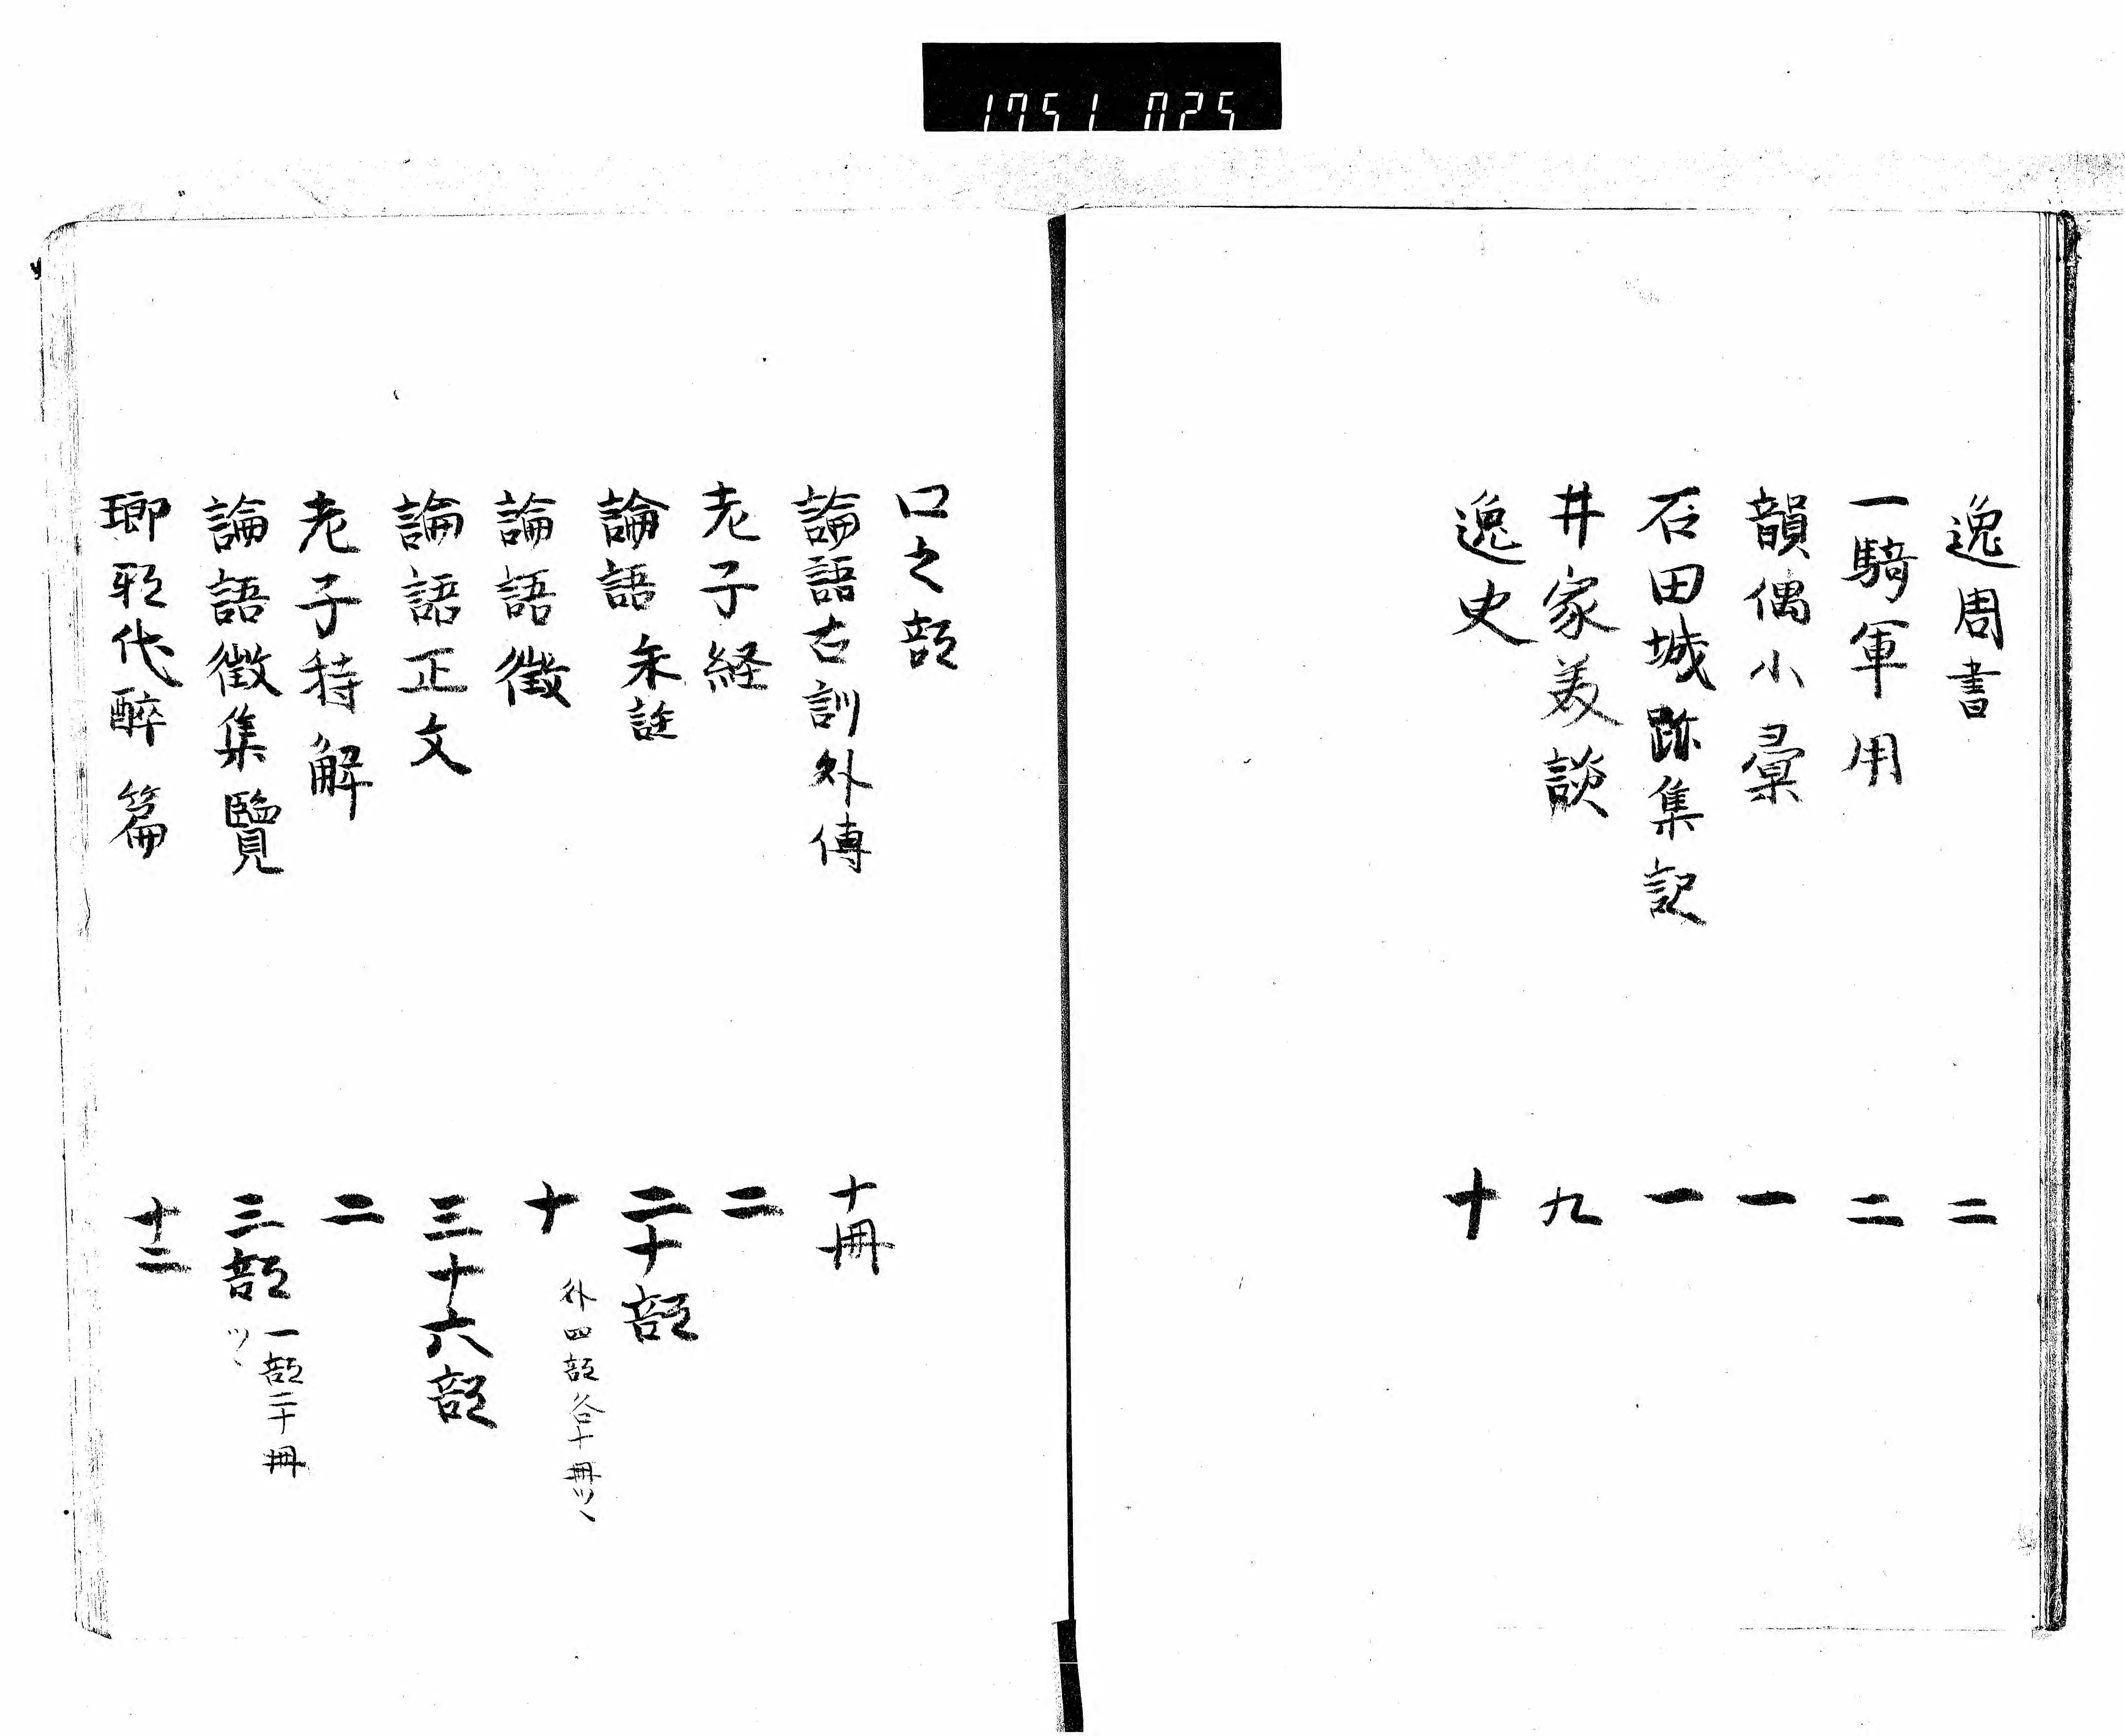 1751 025
逸周書 二
一騎軍用 二
韻偶小彙 一
石田城跡集記 一
井家美談 九
逸史 十
ロ之部
論語古訓外傳 十冊
老子経 二
論語朱註 二十部
論語徴 十 外四部各十冊ツヽ
論語正文 三十六部
老子特解 二
論語徴集覽 三部 一部二十冊ツヽ
瑯琊代醉篇 十二